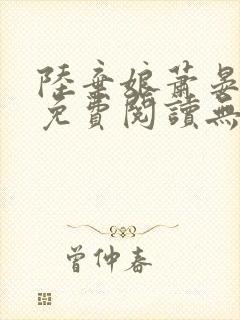 陸棄娘蕭晏
免費閱讀無
曾仲春